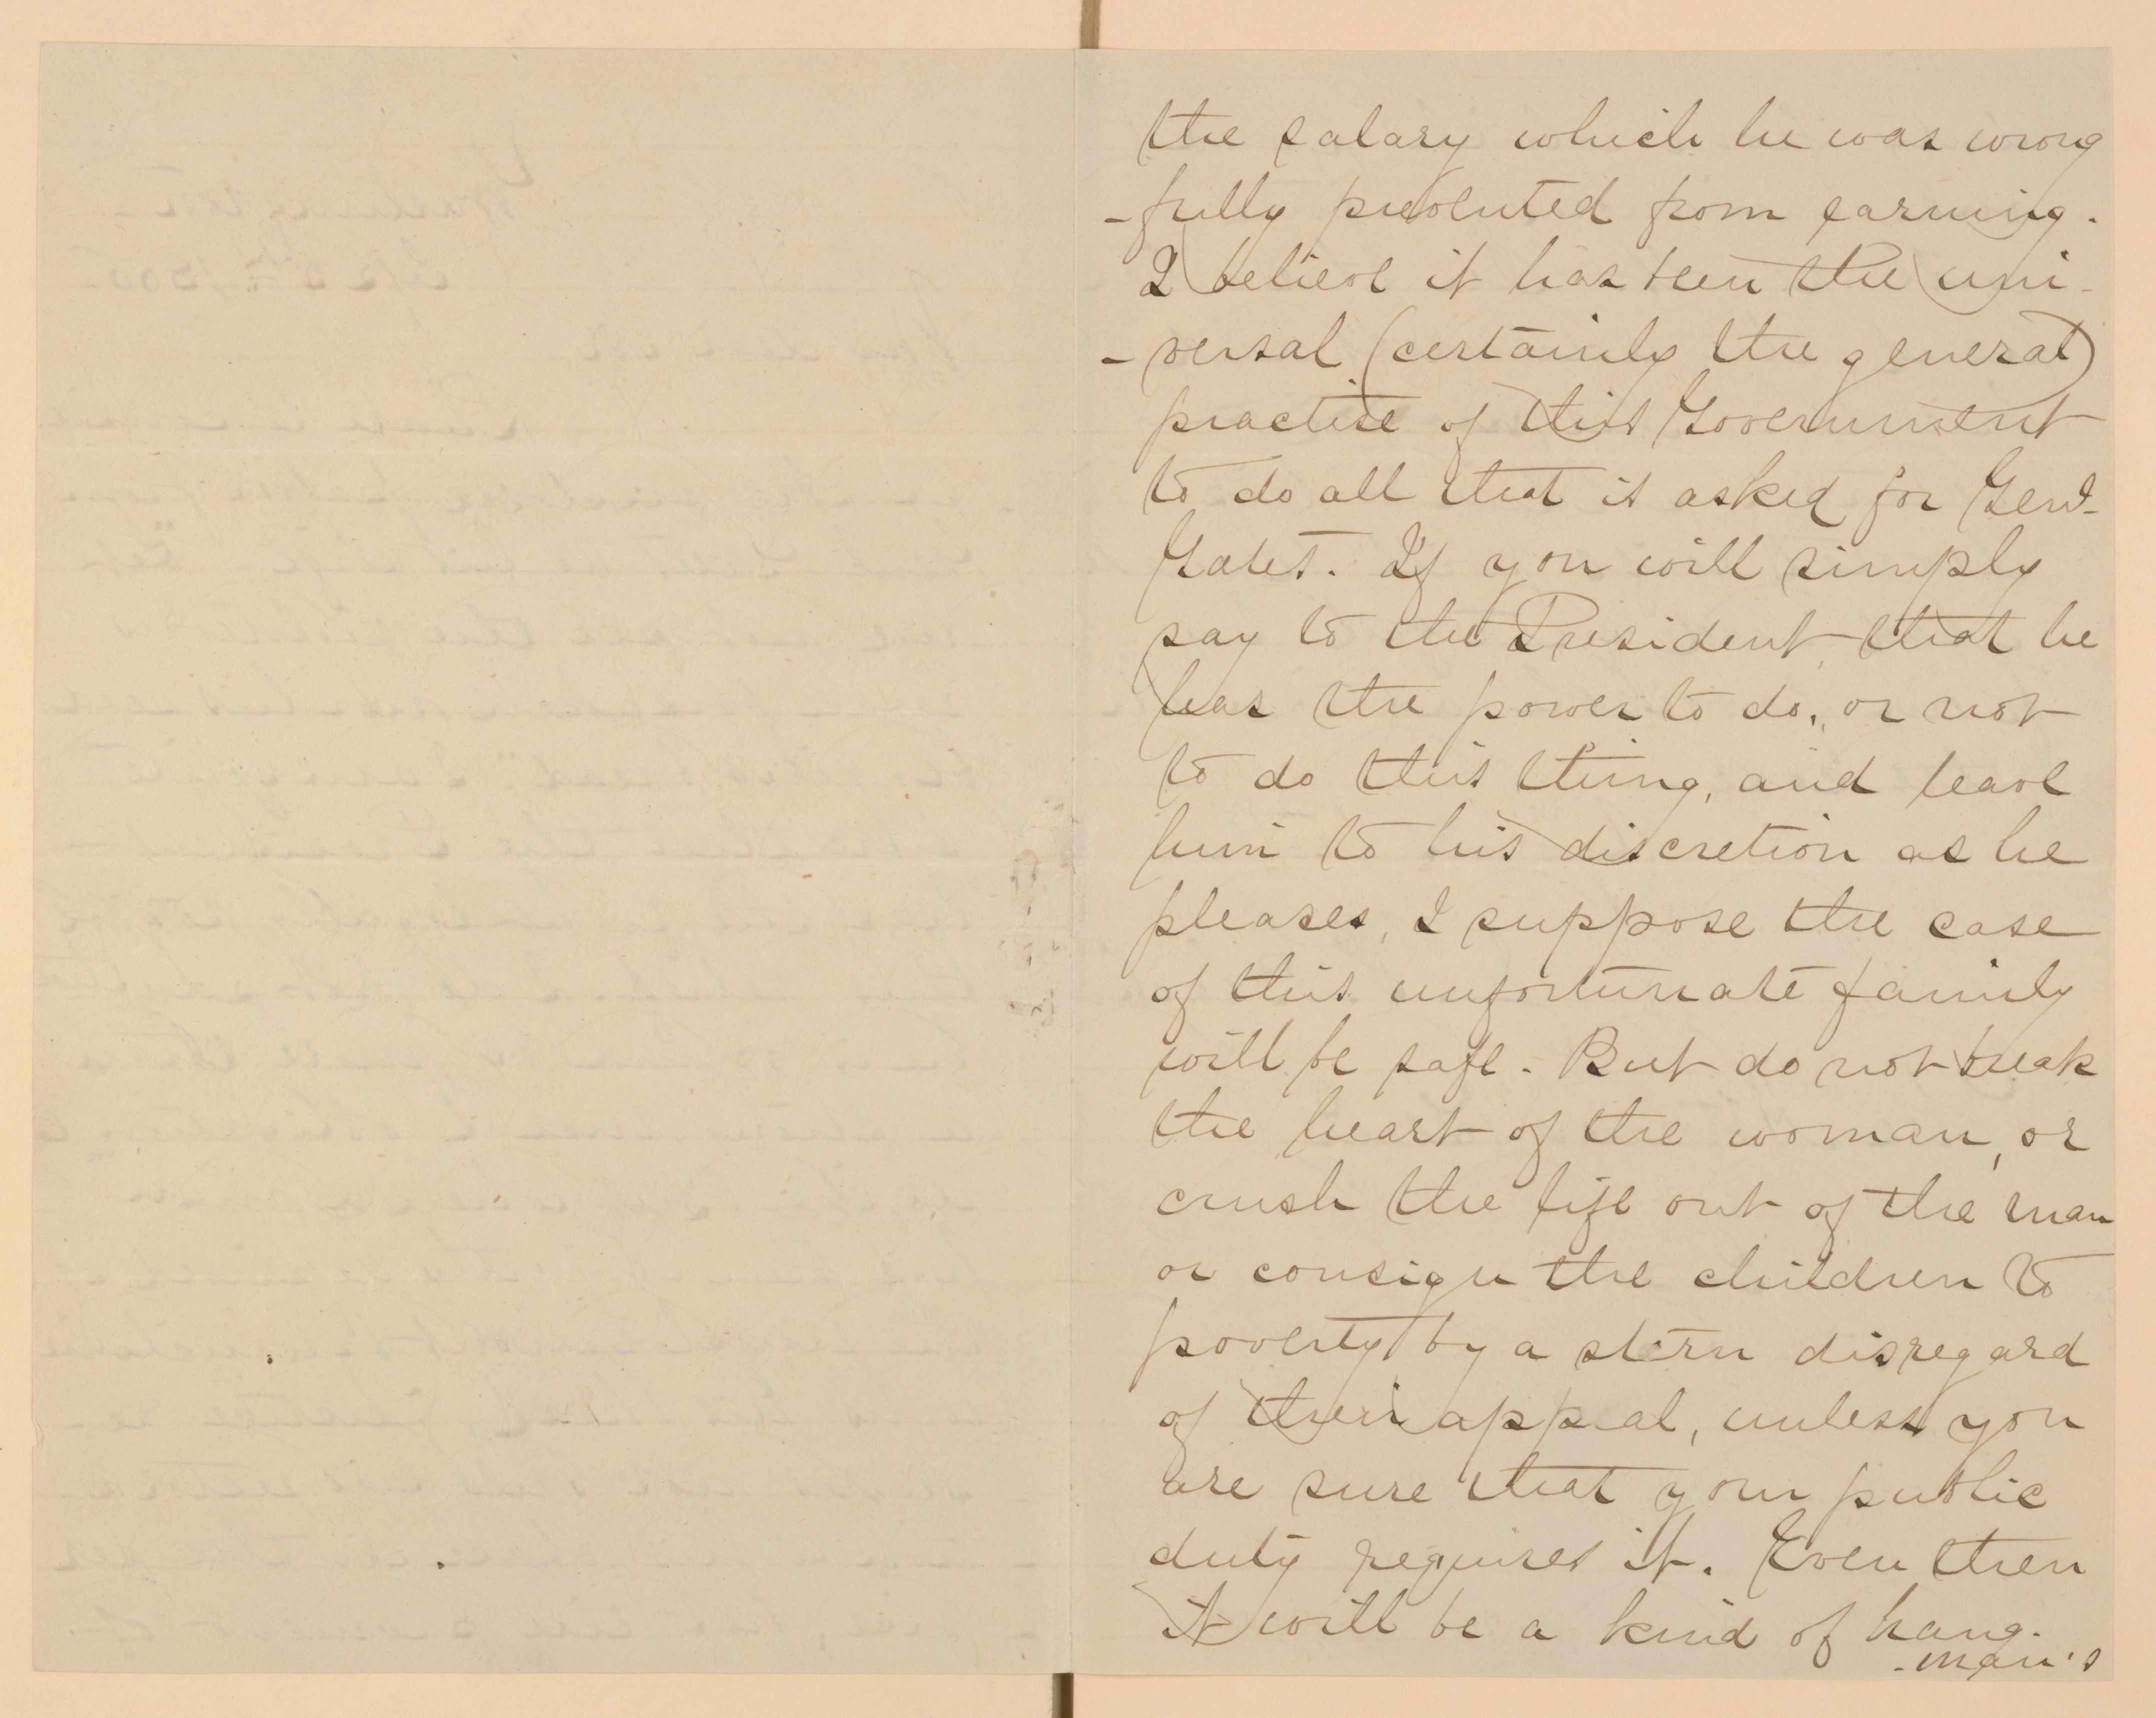 the salary which he was wrong
-fully prevented from earning.
I believe it has been the uni-
-versal (certainly the general)
practise of this Government
to do all that is asked for Genl.
Gates. If you will simply
say to the President, that he
has the power to do, or not
to do this thing, and leave
him to his discretion as he
pleases, I suppose the case
of this unfortunate family
will be safe. But do not break
the heart of the woman, or
crush the life out of the man
or consign the children to
poverty by a stern disregard
of their appeal, unless you
are sure that your public
duty requires it. Even then
it will be a kind of hang-
-man's